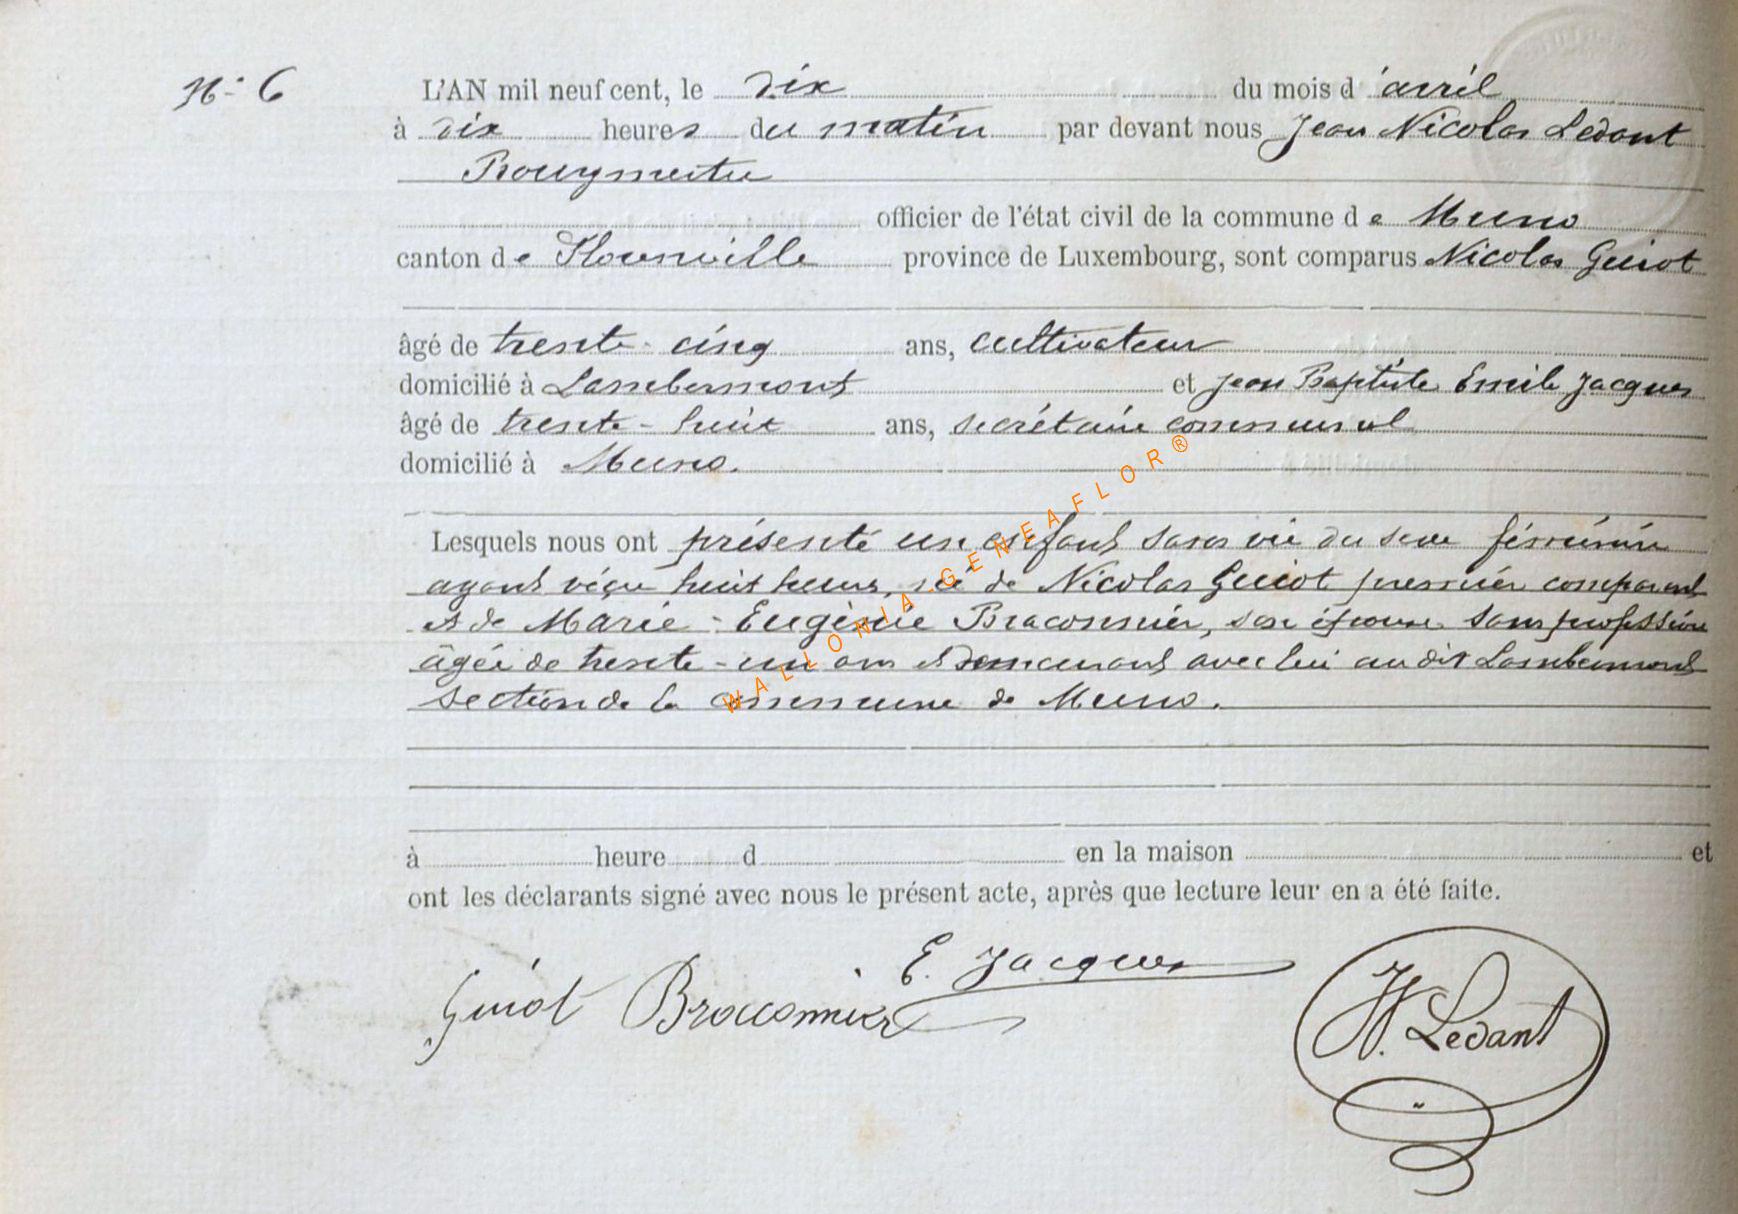 N° 6
L'AN mil neuf cent, le dix du mois d'avril
à dix heures du matin par devant nous Jean Nicolas Ledant
Bourgmestre
officier de l'état civil de la commune de Muno
canton de Florenville province de Luxembourg, sont comparus Nicolas Guiot
âgé de trente-cinq ans, cultivateur
domicilié à Lambermont et Jean Baptiste Emile Jacques
âgé de trente-huit ans, secrétaire communal
domicilié à Muno.
Lesquels nous ont présenté un enfant sans vie du sexe féminin
ayant véçu huit heures, né de Nicolas Guiot premier comparant
et de Marie-Eugènie Braconnier, son épouse sans profession
âgée de trente-un ans et demeurant avec lui au dit Lambermont
section de la commune de Muno.
à heure d en la maison et
ont les déclarants signé avec nous le présent acte, après que lecture leur en a été faite.
E. Jacques
Guiot Braconnier
N. Ledant
WALLONIA-GENEAFLOR®